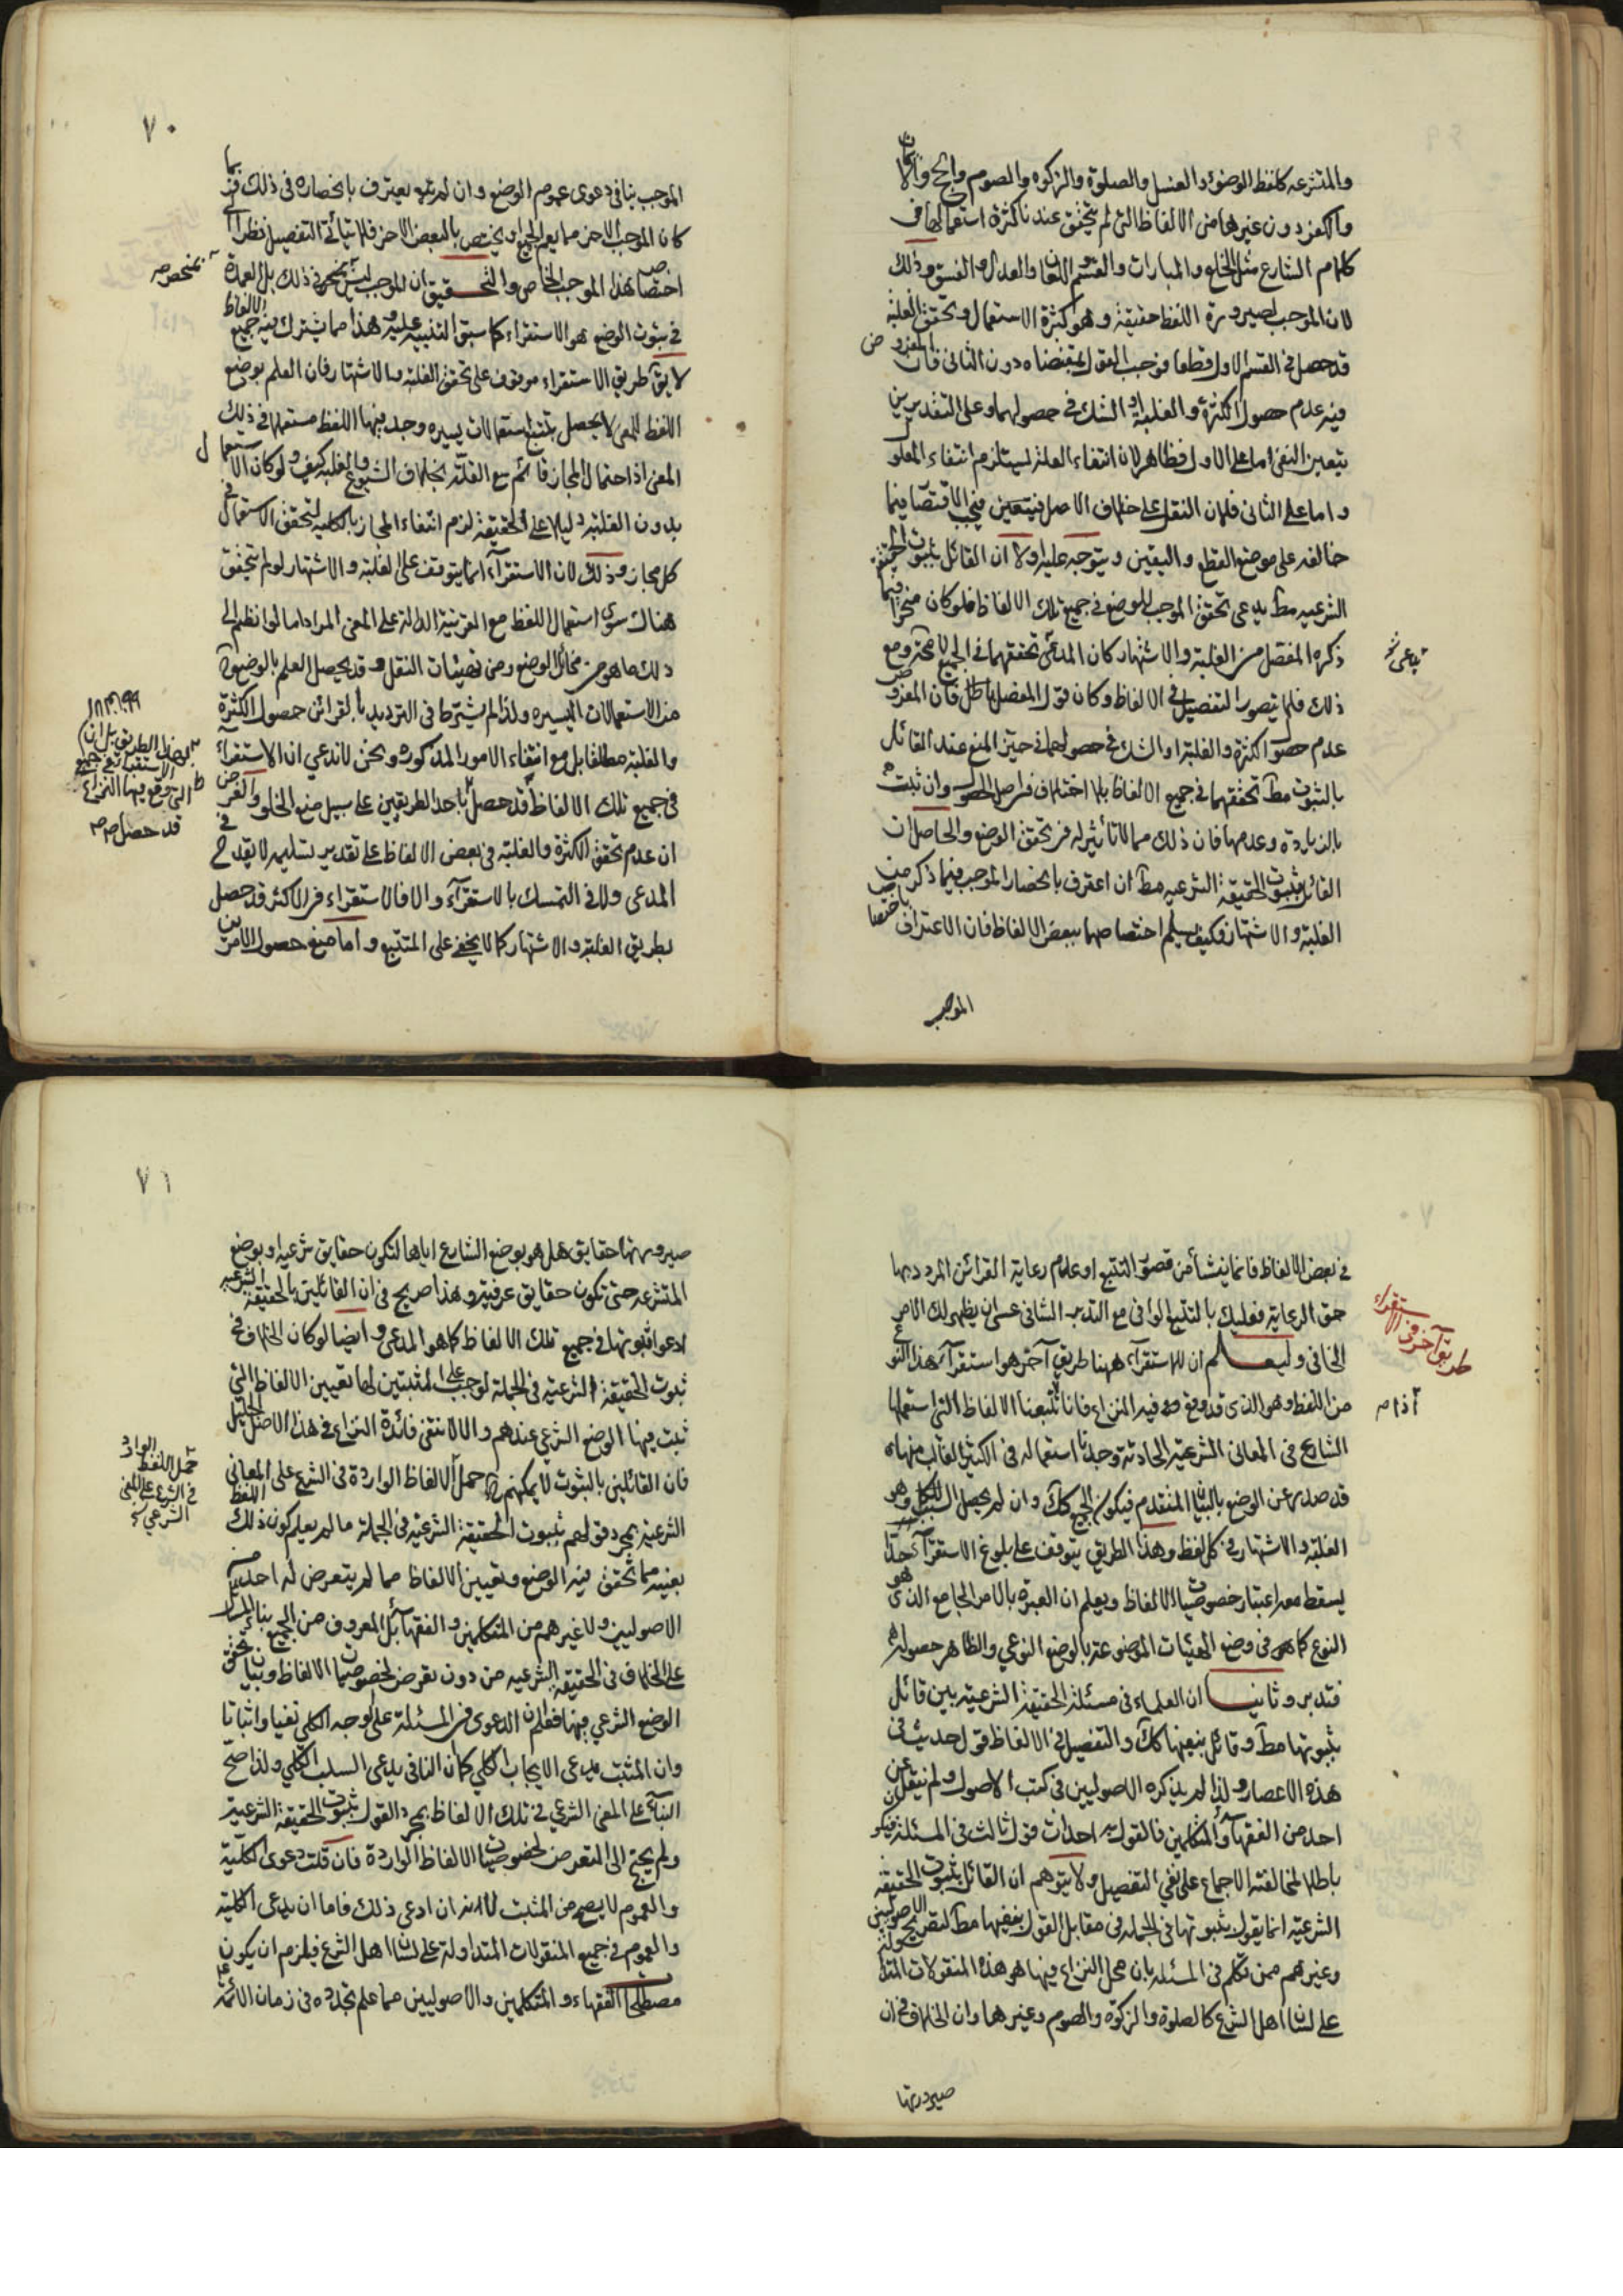 والمتشرعه كلفظ الوضوء والغسل والصلوة والزكوه والصوم والحج والايمان
والكفر دون غيرها من الالفاظ التى لم يتحقق عندنا كثرة استعمالها فى
كلام الشارع مثل الخلع والمبارات والقسم واللعان والعدل والفسق وذلك
لان الموجب لصيرورة اللفظ حقيقة وهو كثرة الاستعمال وتحقق الغلبة
قد حصل فى القسم الاول قطعا فوجب القول بمقتضاه دون الثانى فان المفروض
فيه عدم حصول الكثرة والغلبة او الشك فى حصولهما وعلى التقديرين
يتعين النفى اما على الاول فظاهر لان انتفاء العلة يستلزم انتفاء المعلول
واما على الثانى فلان النقل على خلاف الاصل فيتعين فيجب الاقتصار فيما
خالفه على موضع القطع واليقين ويتوجه عليه اولا ان القائل بثبوت الحقيقة
الشرعيه مط يدعى تحقق الموجب للوضع فى جميع تلك الالفاظ فلو كان منحصرا فيما
ذكره المفصل من الغلبة والاشتهار كان المدعى تحققهما فى الجميع لا محة ومع
يدعى
ذلك فلا يتصور التفصيل فى الالفاظ وكان قول المفصل باطل فان المفروض
عدم حصول الكثرة والغلبة او الشك فى حصولهما فى حيز المنع عند القائل
بالثبوت مط تحققهما فى جميع الالفاظ بلا اختلاف فى اصل الحصول وان ثبت
بالزيادة وعدمها فان ذلك مما لا تأثير له فى تحقق الوضع والحاصل ان
القائل بثبوت الحقيقة الشرعيه مط ان اعترف بانحصار الموجب فيما ذكر من
الغلبة والاشتهار فكيف يسلم اختصاصهما ببعض الالفاظ فان الاعتراف باختصاص
الموجب
٧٠
الموجب ينافى دعوى عموم الوضع وان لم يعترف بانحصاره فى ذلك فربما
كان الموجب الاخر مما يعم الجميع او يختص بالبعض الاخر فلا يتأتى التفصيل نظرا الى
اختصاص هذا الموجب الخاص والتحقيق ان الموجب ليس بمنحصر فى ذلك بل العمدة
بمنحصر
فى ثبوت الوضع هو الاستقراء كما سبق التنبيه عليه وهذا مما يشترك فيه جميع الالفاظ
لا يق طريق الاستقراء موقوف على تحقق الغلبة والاشتهار فان العلم بوضع
اللفظ للمعنى لا يحصل بتتبع استعمالات يسيره وجد فيها اللفظ مستعملا فى ذلك
المعنى اذ احتمال المجاز قائم مع القلة بخلاف الشيوع والغلبة كيف ولو كان الاستعمال
بدون الغلبة دليلا على الحقيقة لزم انتفاء المجاز بالكليه لتحقق الاستعمال فى
كل مجاز وذلك لان الاستقراء انما يتوقف على الغلبة والاشتهار لو لم يتحقق
هناك سوى استعمال اللفظ مع القرينة الدالة على المعنى المراد اما لو انظم الى
ذلك ما هو من مخائل الوضع ومن مقتضيات النقل فقد يحصل العلم بالوضع
من الاستعمالات اليسيره ولذا لم يشترط فى الترديد بالقرائن حصول الكثرة
والغلبة مطلقا بل مع انتفاء الامور المذكورة ونحن لا ندعي ان الاستقراء
فى جميع تلك الالفاظ قد حصل باحد الطريقين على سبيل منع الخلو والغرض
ان عدم تحقق الكثرة والغلبة فى بعض الالفاظ على تقدير تسليمه لا يقدح فى
المدعى ولا فى التمسك بالاستقراء والا فالاستقراء فى الاكثر قد حصل
بطريق الغلبة والاشتهار كما لا يخفى على المتتبع واما منع حصول الامرين
الاستقراء فى جميع
التى وقع فيها النزاع
قد حصل
فى بعض الالفاظ فانما ينشأ من قصور التتبع او عدم رعاية القرائن المردد بها
حق الرعاية فعليك بالتتبع الوافى مع التدبر الشافى عسى ان يظهر لك الامر
طريق آخر فى الاستقراء
الخافى وليعلم ان للاستقراء ههنا طريق آخر هو استقراء هذا النوع
من اللفظ وهو الذى قد وقع فيه النزاع فانا تتبعنا الالفاظ التى استعملها
الشارع فى المعانى الشرعيه الحادثة وجدنا استعماله فى الكثير الغالب منها
قد صدر عن الوضع بالبيان المتقدم فيكون الجميع كك وان لم يحصل السبب للكل وهو
الغلبة والاشتهار فى كل لفظ وهذا الطريق يتوقف على بلوغ الاستقراء حدا
يسقط معه اعتبار خصوصيات الالفاظ ويعلم ان العبرة بالامر الجامع الذى هو
النوع كما هو فى وضع الهيئات الموضوعة بالوضع النوعي والظاهر حصوله
فتدبر وثانيا ان العلماء فى مسئلة الحقيقة الشرعيه بين قائل
بثبوتها مط وقائل بنفيها كك والتفصيل فى الالفاظ قول حديث فى
هذه الاعصار ولذا لم يذكره الاصوليين فى كتب الاصول ولم ينقل عن
احد من الفقهاء والمتكلمين فالقول به احداث قول ثالث فى المسئلة فيكون
باطلا لمخالفته الاجماع على نفي التفصيل ولا يتوهم ان القائل بثبوت الحقيقة
الشرعيه انما يقول بثبوتها فى الجملة فى مقابل القول بنفيها مط لتصريح الاصوليين
وغيرهم ممن تكلم فى المسئلة بان محل النزاع فيها هو هذه المنقولات المتداولة
على لسان اهل الشرع كالصلوة والزكوة والصوم وغيرها وان الخلاف فى ان
صيرورتها
٧١
صيرورتها حقايق هل هو بوضع الشارع اياها لتكون حقايق شرعيه او بوضع
المتشرعه حتى تكون حقايق عرفيه وهذا صريح فى ان القائلين بالحقيقة الشرعيه
ادعوا ثبوتها فى جميع تلك الالفاظ كما هو المدعى وايضا لو كان الخلاف فى
ثبوت الحقيقة الشرعيه فى الجملة لوجب على المثبتين لها تعيين الالفاظ التى
ثبت فيها الوضع الشرعي عندهم والا لانتفى فائدة النزاع فى هذا الاصل الجليل
فان القائلين بالثبوت لا يمكنهم حمل الالفاظ الواردة فى الشرع على المعانى
حمل اللفظ الوارد
فى الشرع على المعنى
الشرعي
الشرعيه بمجرد قولهم بثبوت الحقيقة الشرعيه فى الجملة ما لم يعلم كون ذلك اللفظ
بعينه مما تحقق فيه الوضع وتعيين الالفاظ مما لم يتعرض له احد من
الاصوليين ولا غيرهم من المتكلمين والفقهاء بل المعروف من الجميع بناء المسئلة
على الخلاف فى الحقيقة الشرعيه من دون تعرض لخصوصيات الالفاظ وبيان تحقق
الوضع الشرعي فيها فعلم ان الدعوى فى المسئلة على الوجه الكلي نفيا واثباتا
وان المثبت يدعى الايجاب الكلي كما ان النافى يدعى السلب الكلي ولذا صح
البناء على المعنى الشرعي فى تلك الالفاظ بمجرد القول بثبوت الحقيقة الشرعية
ولم يحتج الى التعرض لخصوصيات الالفاظ الواردة فان قلت دعوى الكلية
والعموم لا يصح من المثبت لانه ان ادعى ذلك فاما ان يدعى الكلية
والعموم فى جميع المنقولات المتداولة على لسان اهل الشرع فيلزم ان يكون
مصطلحات الفقهاء والمتكلمين والاصوليين مما علم تجدده فى زمان الائمة